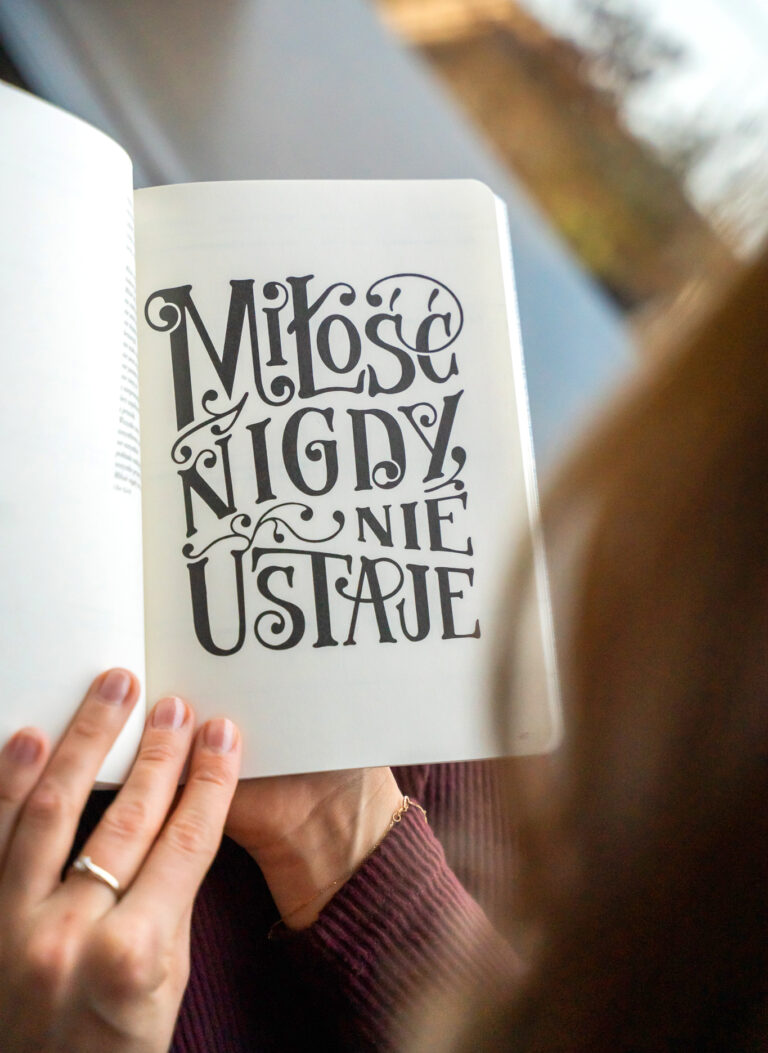 Miłość
nigdy
nie
ustaje